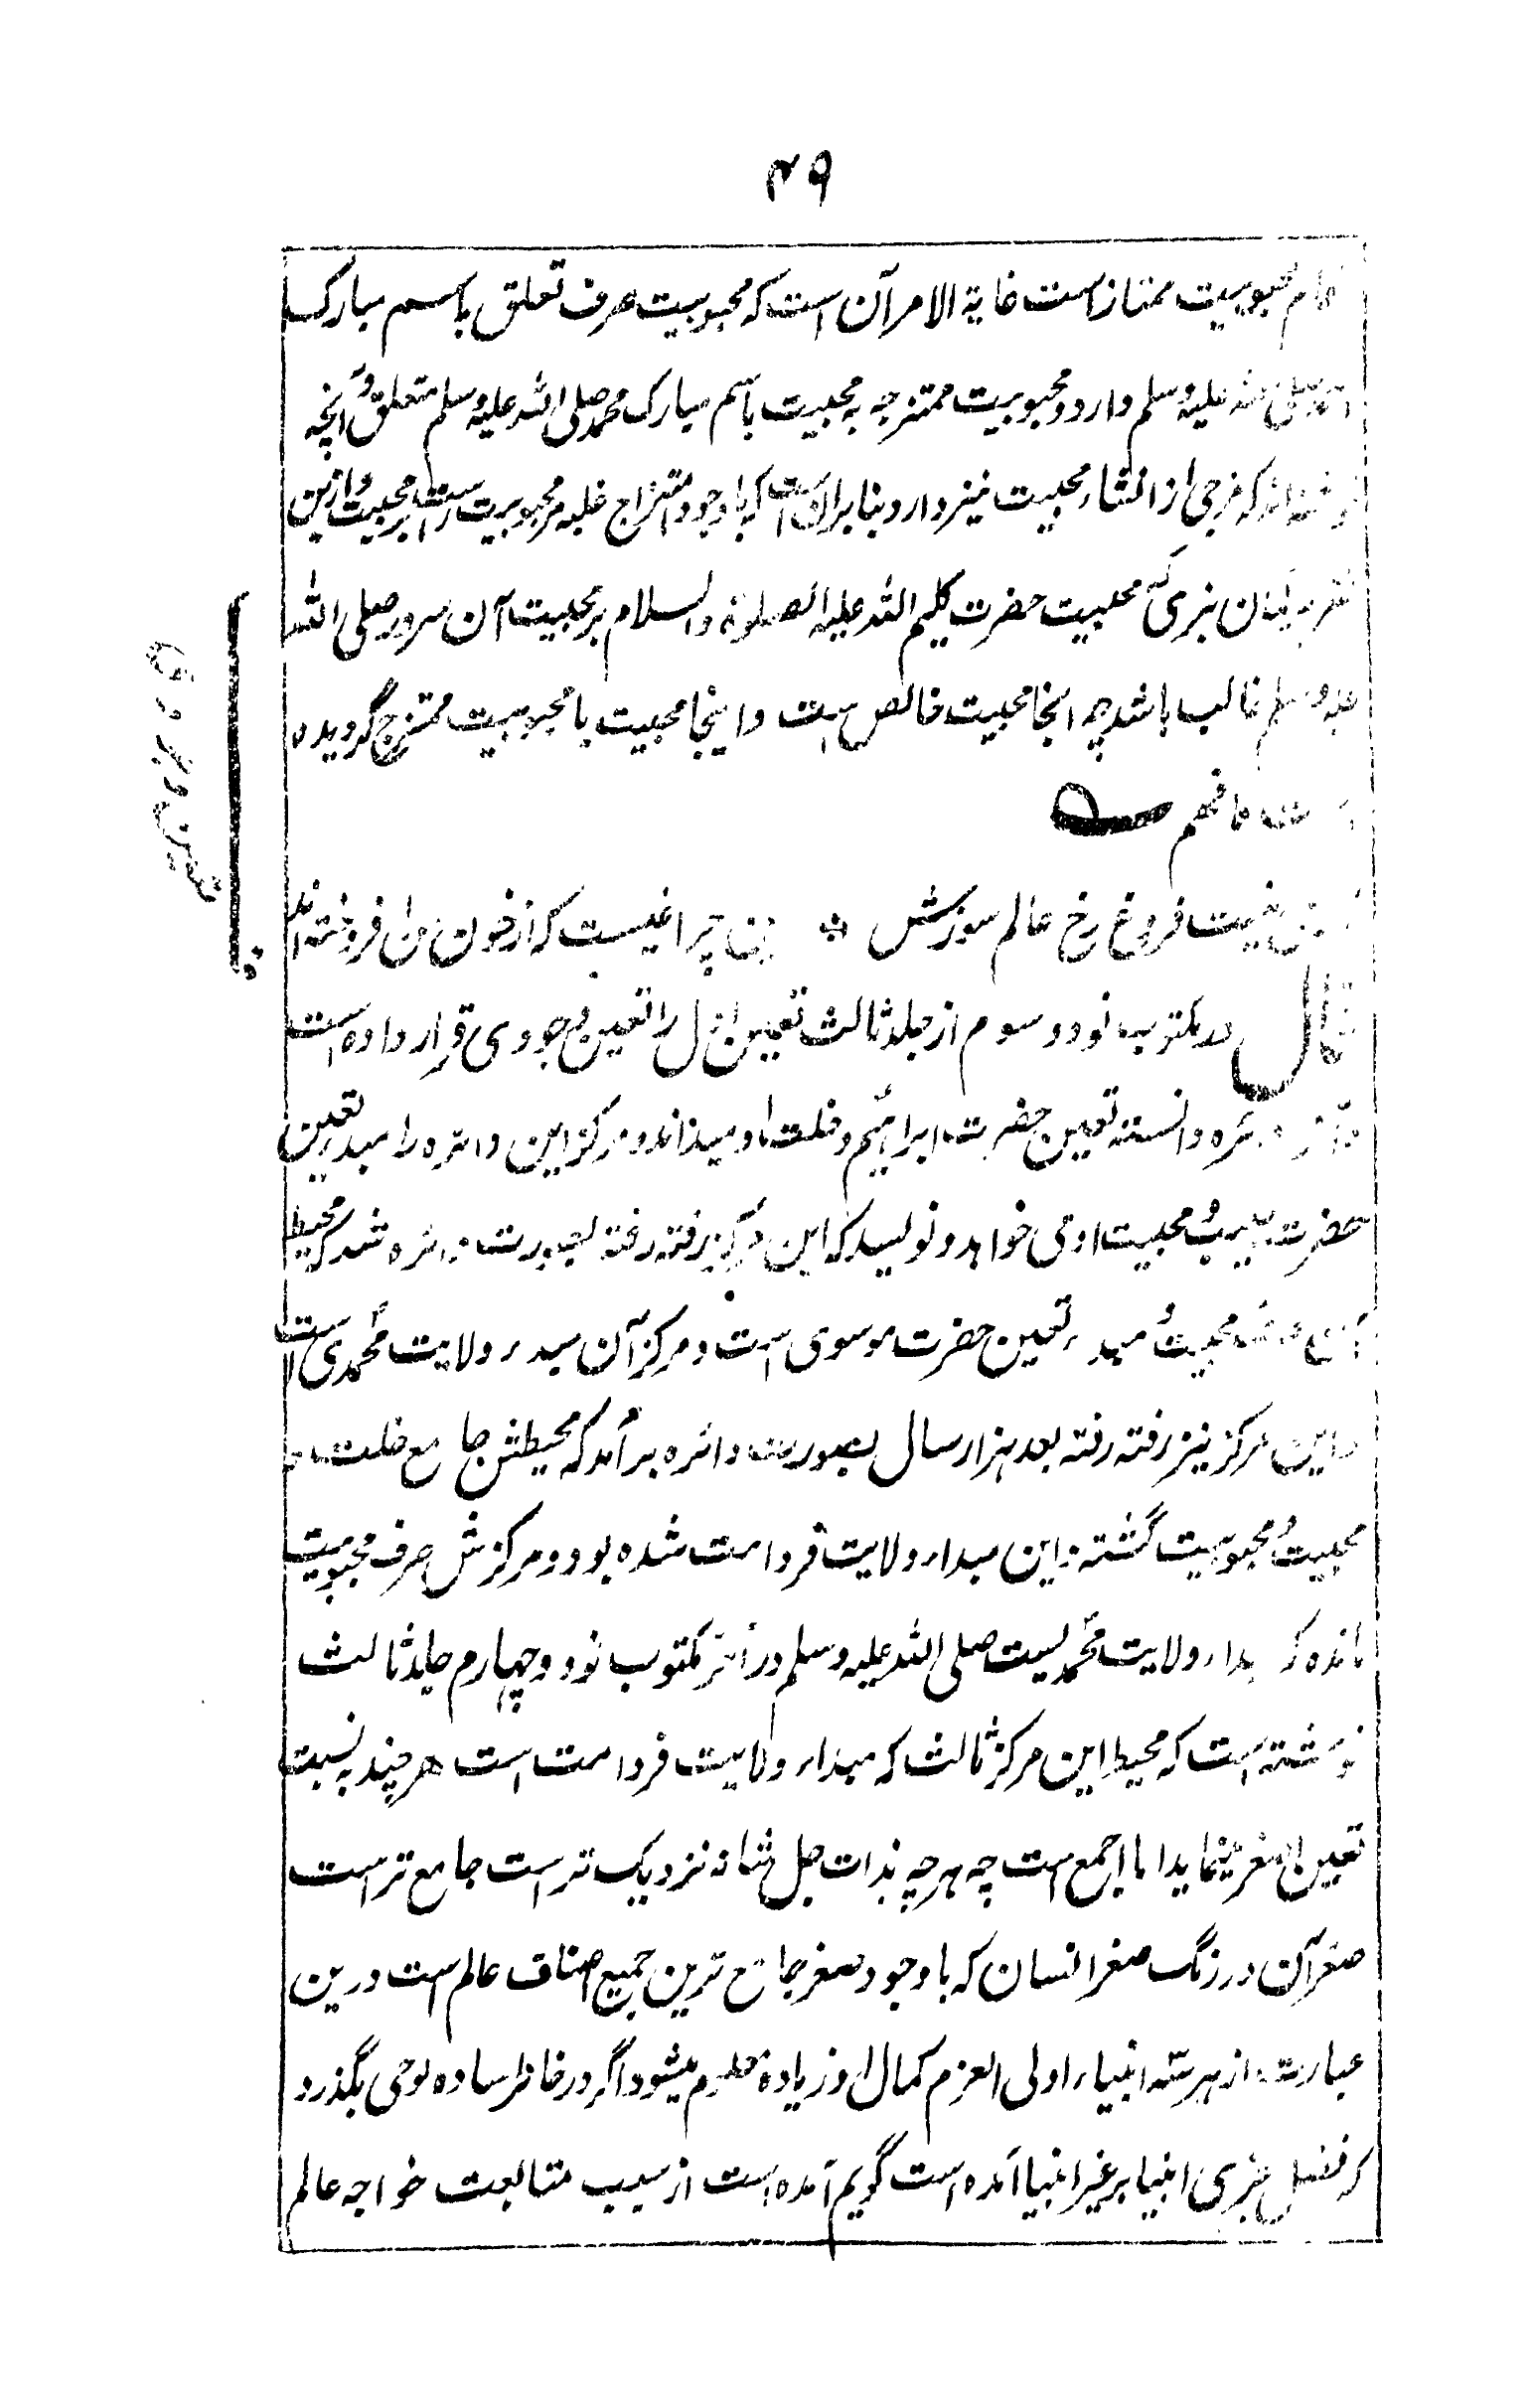 ۴۹
محبوبیت ممتاز است غایة الامر آن است که محبوبیت صرف تعلق باسم مبارک
صلی الله علیه وسلم دارد و محبوبیت ممتزجه به محبیت باسم مبارک محمد صلی الله علیه وسلم متعلق و آنچه
که مزجی از انتشاء محبیت نیز دارد بنابر آن است که باوجود امتزاج غلبه مر محبوبیت راست بر محبیت و ازین
محبیت حضرت کلیم الله علیه الصلوة والسلام بر محبیت آن سرور صلی الله
علیه وسلم غالب باشد چه آنجا محبیت خالص است و اینجا محبیت با محبوبیت ممتزج گردیده
فافهم
فروغ رخ عالم سوزش * چراغیست که از خون من افروخته اند
قال در مکتوب نود و سوم از جلد ثالث تعین اول را تعین وجودی قرار داده است
دانسته تعین حضرت ابراهیم و خلت او میداند و مرکز این دائره را مبدء تعین
حضرت حبیب و محبیت او می خواهد و نویسد که این مرکز رفته رفته بصورت دائره شد که محیط
محبیت و مبدء تعین حضرت موسوی است و مرکز آن مبدء ولایت محمدی است
و این مرکز نیز رفته رفته بعد هزار سال بصورت دائره برآمد که محیطش جامع خلت و
محبیت و محبوبیت گشته و این مبداء ولایت فرد امت شده بود و مرکزش صرف محبوبیت
مانده که مبداء ولایت محمدیست صلی الله علیه وسلم در آخر مکتوب نود و چهارم جلد ثالث
نوشته است که محیط این مرکز ثالث که مبداء ولایت فرد امت است هرچند به نسبت
تعین اول اصغر مینماید اما اجمع است چه هرچه بذات جل شانه نزدیک تر است جامع تر است
صغر آن در رنگ صغر انسان که باوجود صغر جامع ترین جمیع اصناف عالم است درین
عبارت از هر سه انبیاء اولی العزم کمال او زیاده معلوم میشود اگر در خاطر ساده لوحی بگذرد
که فضل جزی انبیا بر غیر انبیا آمده است گویم آمده است از سبب متابعت خواجه عالم
تعین وجودی